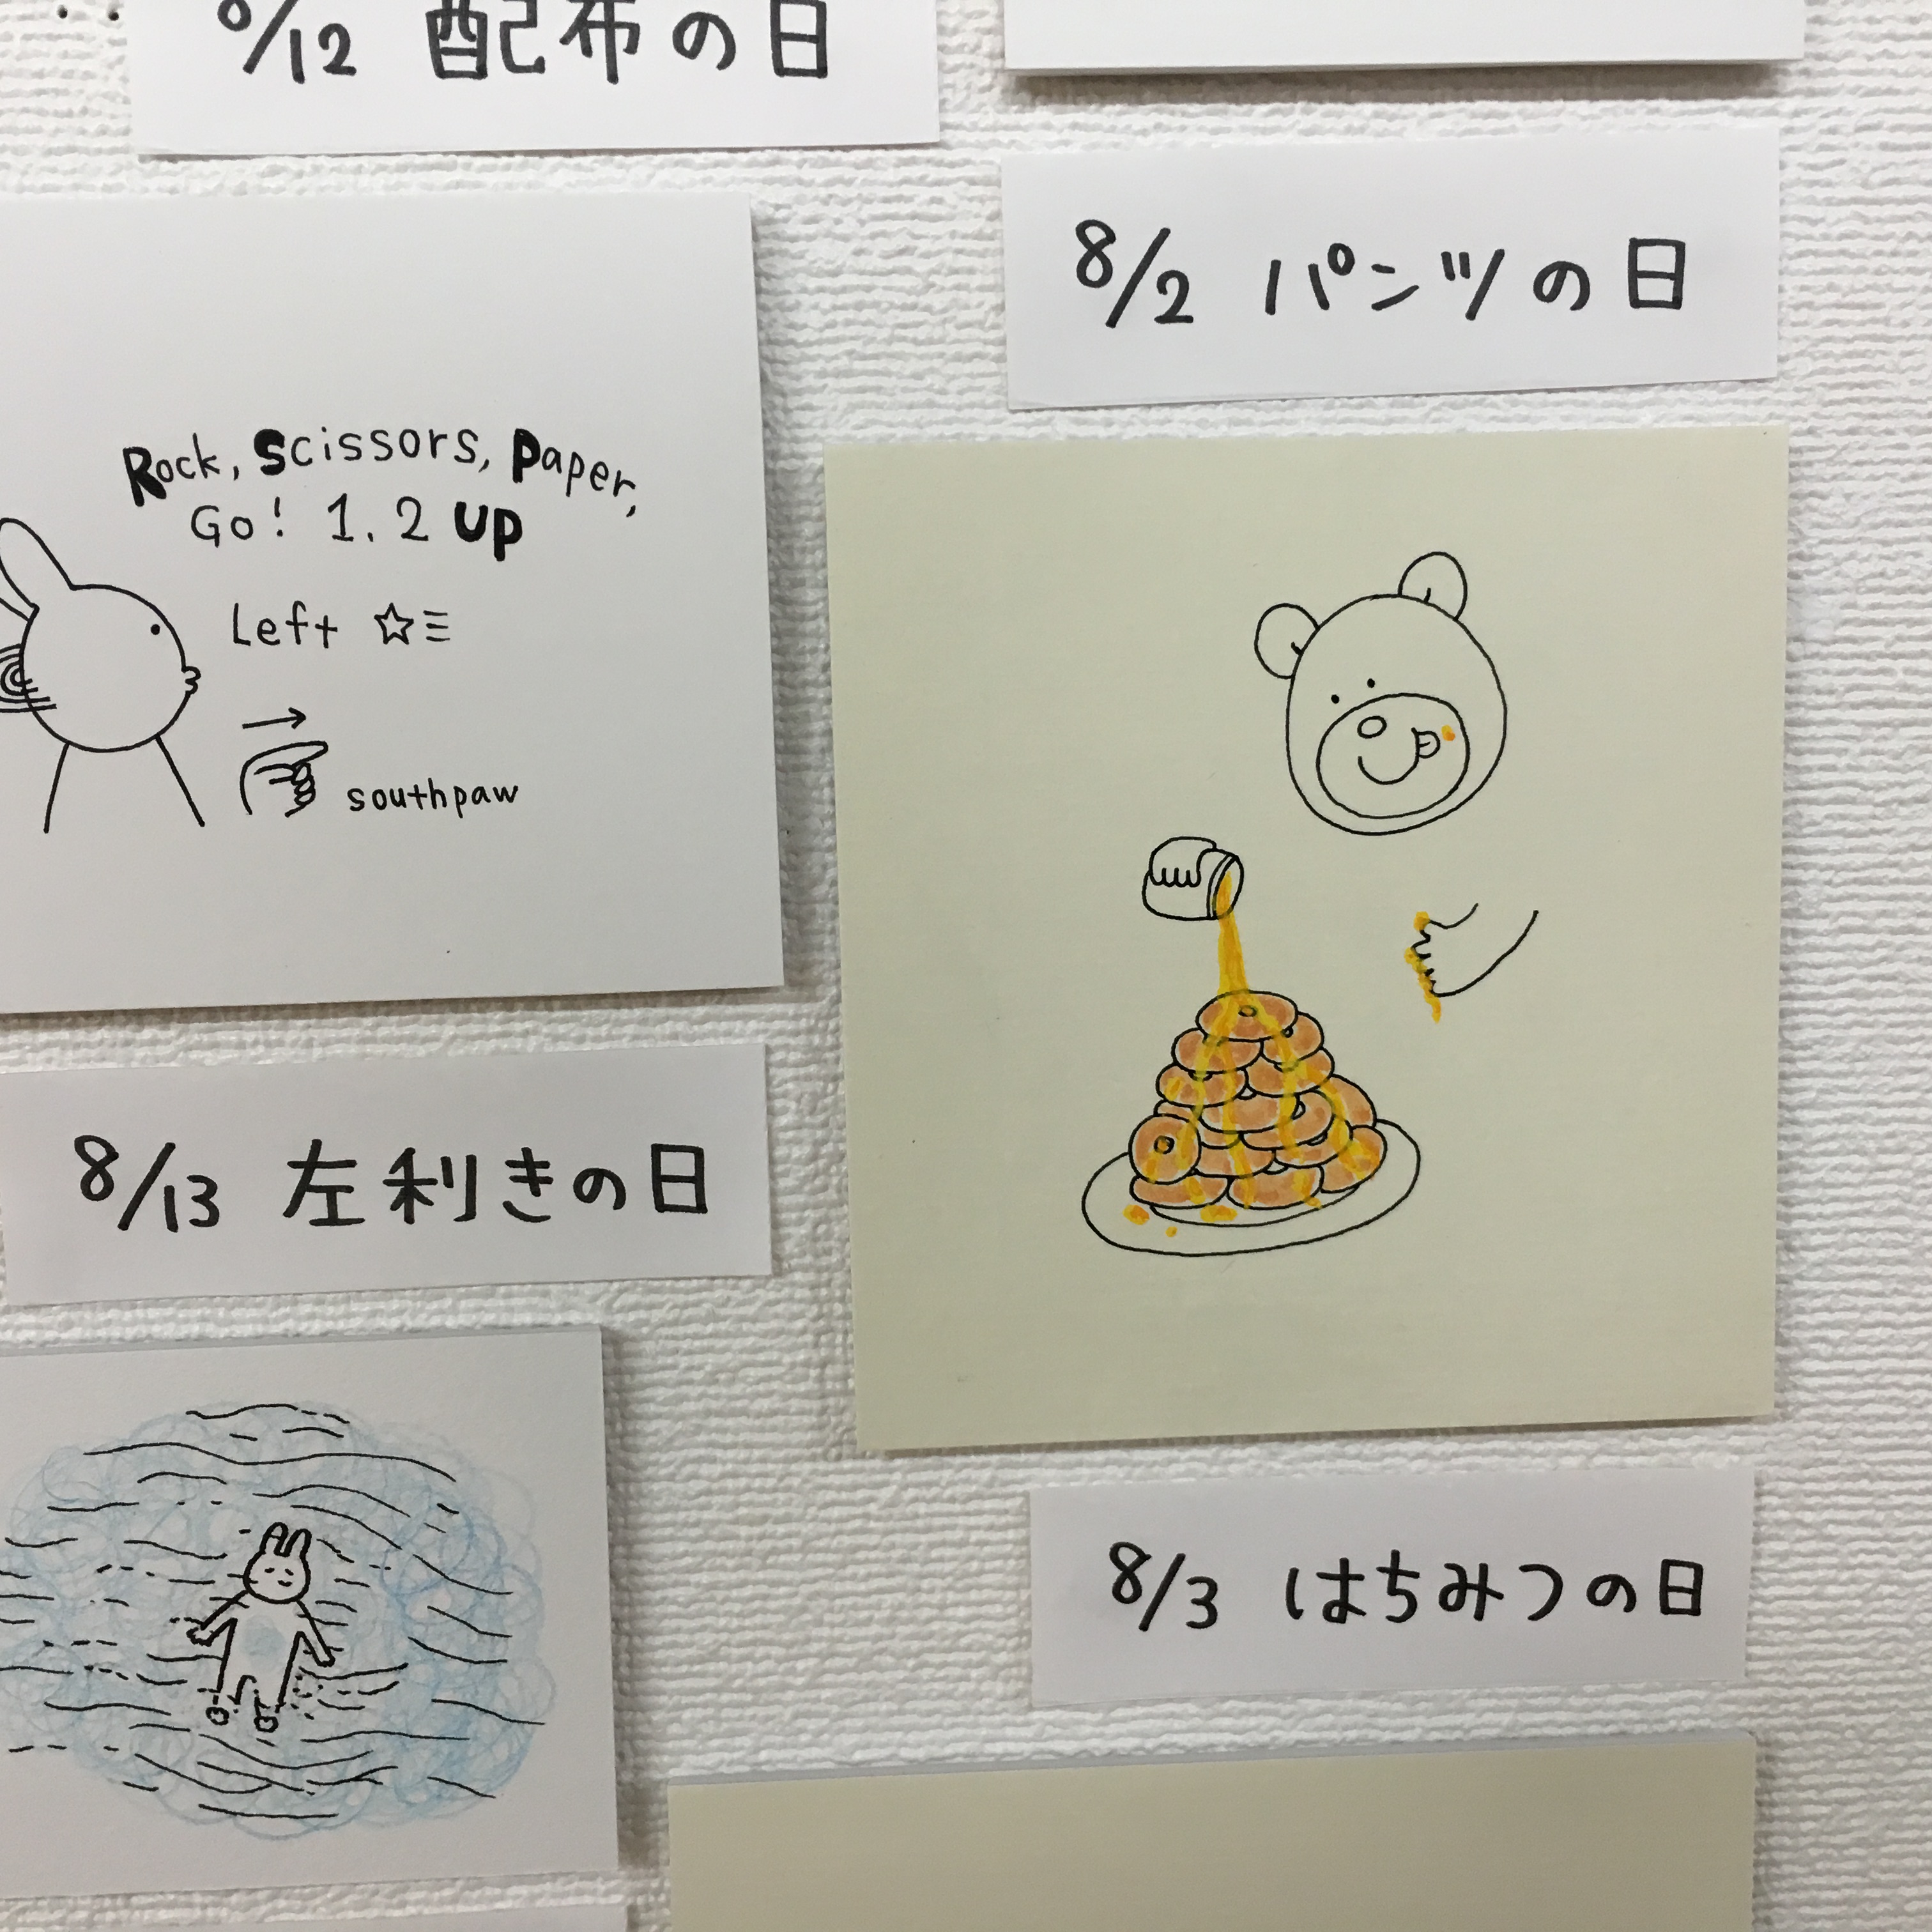 8/12 配布の日
8/2 パンツの日
Rock, Scissors, Paper,
Go! 1. 2 UP
Left ☆
southpaw
8/13 左利きの日
8/3 はちみつの日